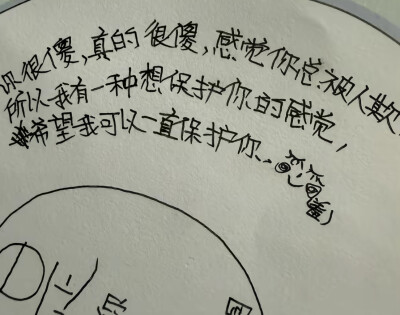 很傻,真的很傻,感觉你总被人欺
所以我有一种想保护你的感觉,
希望我可以一直保护你..
你